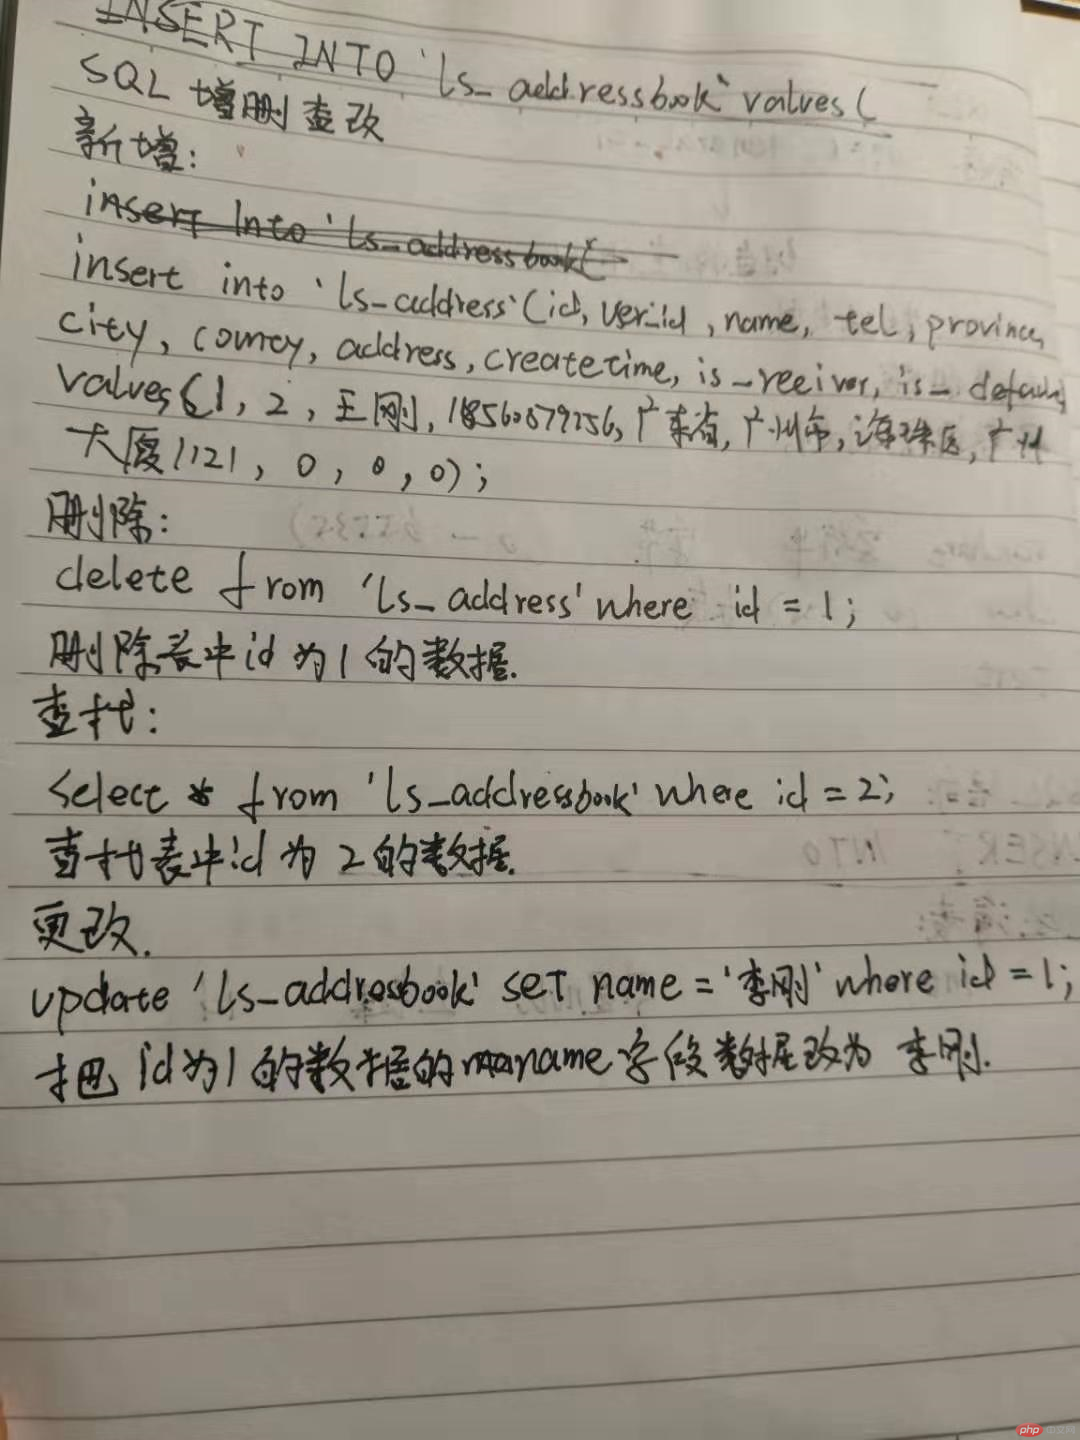 INSERT INTO `ls_addressbook` values(
SQL 增删查改
新增:
insert into `ls_addressbook(
insert into `ls_address`(id, user_id, name, tel, province,
city, county, address, createtime, is_reeiver, is_default
values(1, 2, 王刚, 18560879256, 广东省, 广州市, 海珠区, 广州
大厦1121, 0, 0, 0);
删除:
delete from 'ls_address' where id = 1;
删除表中id为1的数据.
查找:
select * from 'ls_addressbook' where id = 2;
查找表中id为2的数据.
更改.
update 'ls_addressbook' set name = '李刚' where id = 1;
把id为1的数据的name字段数据改为 李刚.
php